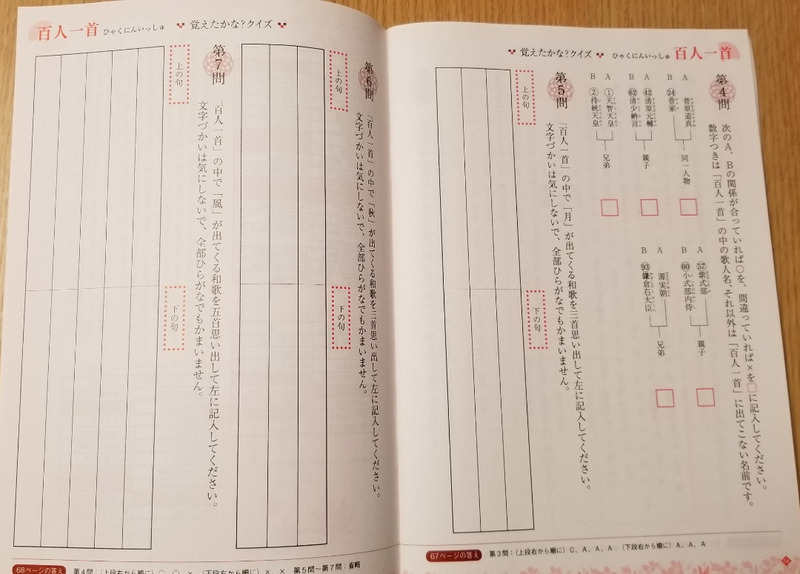 ✦ 覚えたかな?クイズ ✦ ひゃくにんいっしゅ 百人一首
第4問
次のA、Bの関係が合っていれば○を、間違っていれば×を□に記入してください。
数字つきは「百人一首」の中の歌人名、それ以外は「百人一首」に出てこない名前です。
A 菅原道真
B ㉔菅家
同一人物
A ㊷清原元輔
B 62清少納言
親子
A ①天智天皇
B ②持統天皇
兄弟
A 57紫式部
B 60小式部内侍
親子
A 源実朝
B 93鎌倉右大臣
兄弟
第5問
「百人一首」の中で「月」が出てくる和歌を三首思い出して左に記入してください。
文字づかいは気にしないで、全部ひらがなでもかまいません。
上の句
下の句
67ページの答え 第3問:(上段右から順に)C、A、A、A (下段右から順に)A、A、A
百人一首 ひゃくにんいっしゅ ✦ 覚えたかな?クイズ ✦
第6問
「百人一首」の中で「秋」が出てくる和歌を三首思い出して左に記入してください。
文字づかいは気にしないで、全部ひらがなでもかまいません。
上の句
下の句
第7問
「百人一首」の中で「風」が出てくる和歌を五百思い出して左に記入してください。
文字づかいは気にしないで、全部ひらがなでもかまいません。
上の句
下の句
68ページの答え 第4問:(上段右から順に)○、○、× (下段右から順に)×、× 第5問〜第7問:省略